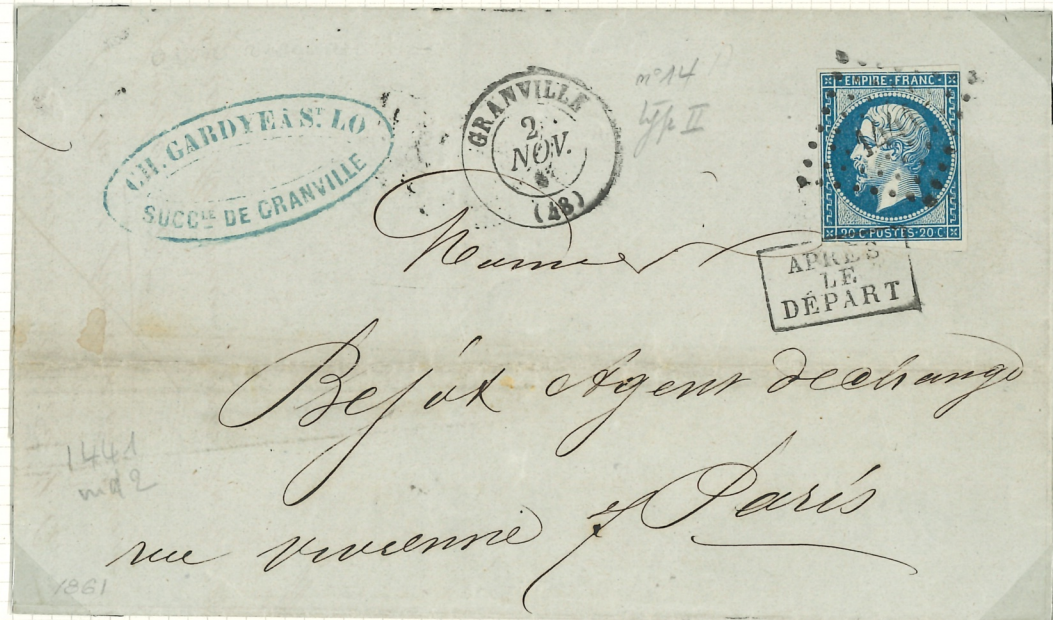 CH. GARDYE À ST LO
SUCCLE DE GRANVILLE
GRANVILLE
2
NOV.
(48)
nº 14
type II
EMPIRE · FRANC ·
20 C POSTES · 20 C
APRÈS
LE
DÉPART
Bejot Agent dechange
rue vivienne Paris
1441
md 2
1861